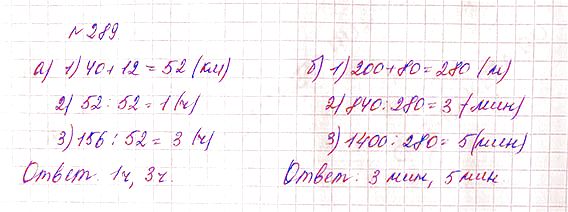 № 289
а) 1) 40 + 12 = 52 (км)
2) 52 : 52 = 1 (ч)
3) 156 : 52 = 3 (ч)
Ответ. 1ч, 3ч.
б) 1) 200 + 80 = 280 (м)
2) 840 : 280 = 3 (мин)
3) 1400 : 280 = 5 (мин)
Ответ: 3 мин, 5 мин